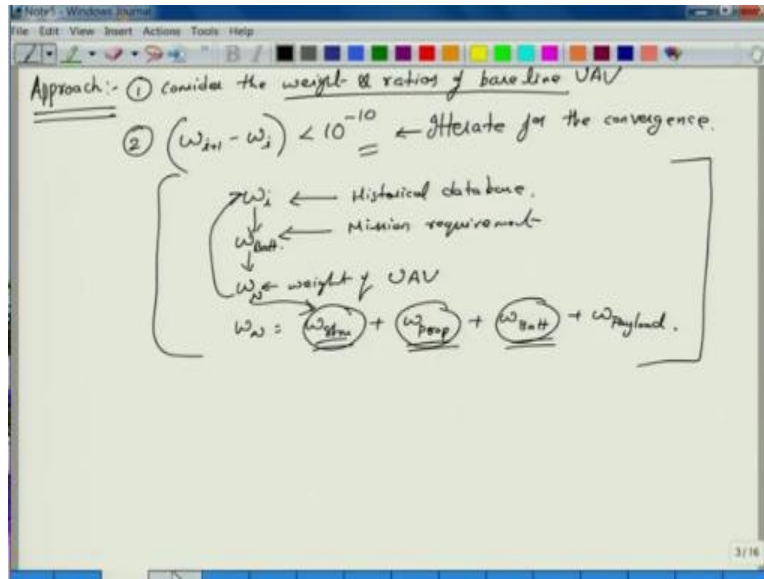 Note5 - Windows Journal
File Edit View Insert Actions Tools Help
Approach:- ① consider the weight & ratios of base line UAV
② (W_{i+1} - W_i) < 10^{-10} ← Itterate for the convergence.
W_i ← Historical database.
↓
W_{Batt.} ← Mission requirement
↓
W_N ← weight of UAV
W_N = W_{Stru} + W_{Prop} + W_{Batt} + W_{Payload}.
3/16